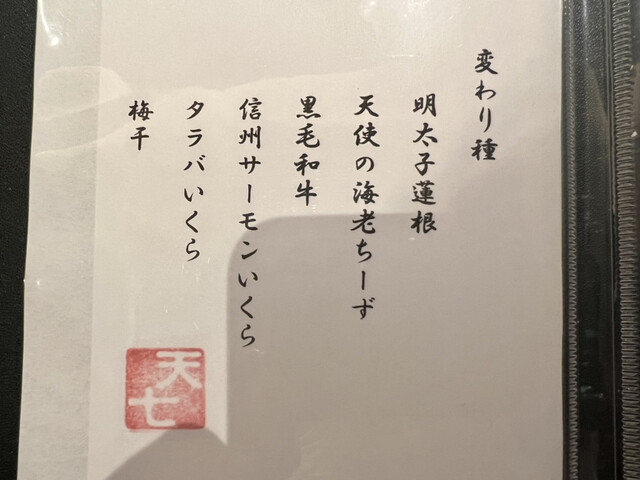 変わり種
明太子蓮根
天使の海老ちーず
黒毛和牛
信州サーモンいくら
タラバいくら
梅干
天七